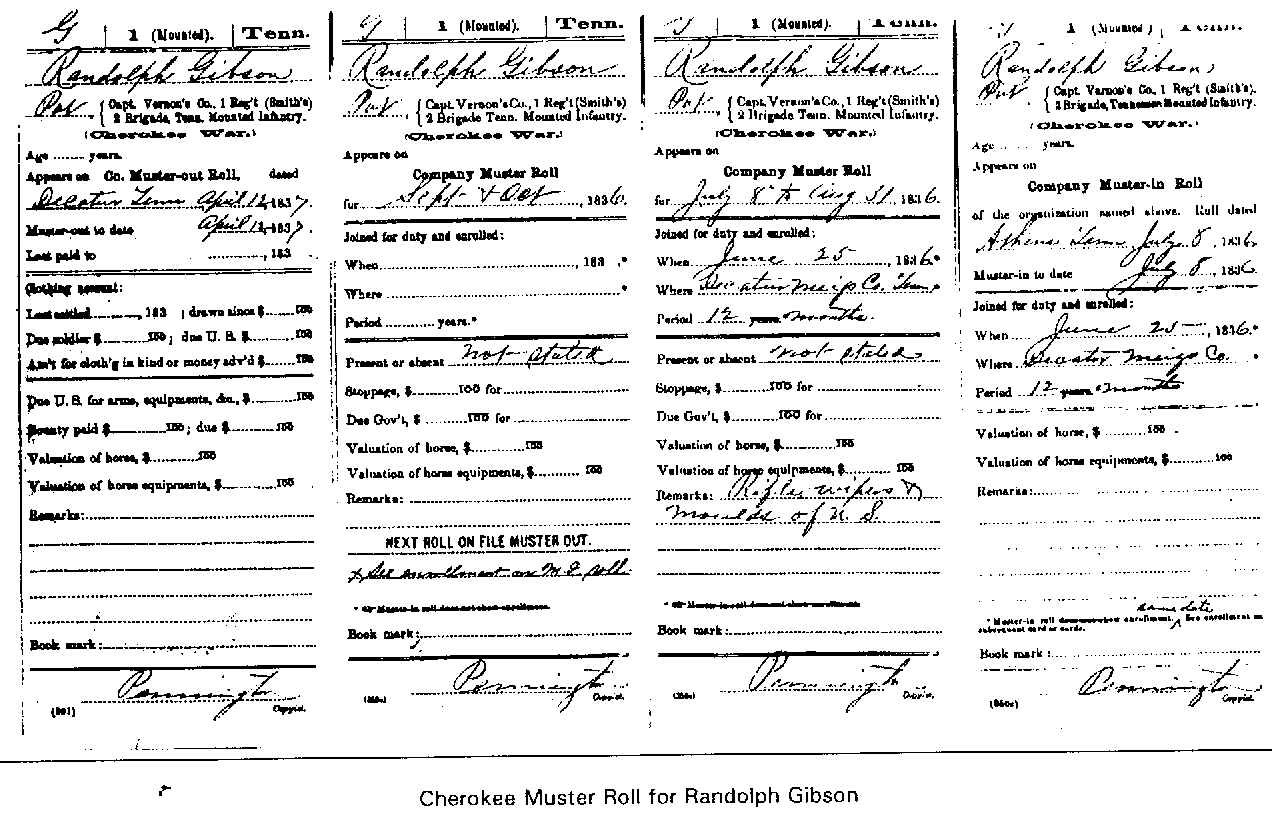 G | 1 (Mounted). | Tenn.
Randolph Gibson
Pvt., { Capt. Vernon's Co., 1 Reg't (Smith's)
2 Brigade, Tenn. Mounted Infantry.
(Cherokee War.)
Age ........ years.
Appears on Co. Muster-out Roll, dated
Decatur Tenn April 12, 1837.
Muster-out to date April 12, 1837.
Last paid to ..............., 183 .
Clothing account:
Last settled ..........., 183 ; drawn since $ ....... 100
Due soldier $ ........ 100; due U. S. $ ......... 100
Am't for cloth'g in kind or money adv'd $ ...... 100
Due U. S. for arms, equipments, &c., $ ......... 100
Bounty paid $ ........... 100; due $ .......... 100
Valuation of horse, $ .......... 100
Valuation of horse equipments, $ .......... 100
Remarks:
Book mark:
Pennington
(361) Copyist.
G | 1 (Mounted). | Tenn.
Randolph Gibson
Pvt { Capt. Vernon's Co., 1 Reg't (Smith's)
2 Brigade Tenn. Mounted Infantry.
(Cherokee War.)
Appears on
Company Muster Roll
for Sept & Oct, 1836.
Joined for duty and enrolled:
When ..............., 183 .*
Where ............... *
Period ........... years.*
Present or absent not stated
Stoppage, $ ........... 100 for
Due Gov't, $ ........... 100 for
Valuation of horse, $ ........... 100
Valuation of horse equipments, $ ........... 100
Remarks:
NEXT ROLL ON FILE MUSTER OUT.
* See enrollment on M. I. roll.
Book mark:
Pennington
Copyist.
G | 1 (Mounted). | Tenn.
Randolph Gibson
Pvt., { Capt. Vernon's Co., 1 Reg't (Smith's)
2 Brigade Tenn. Mounted Infantry.
(Cherokee War.)
Appears on
Company Muster Roll
for July 8 to Aug 31, 1836.
Joined for duty and enrolled:
When June 25, 1836.*
Where Decatur Meigs Co. Tenn *
Period 12 years months.
Present or absent not stated
Stoppage, $ ........... 100 for
Due Gov't, $ ........... 100 for
Valuation of horse, $ ........... 100
Valuation of horse equipments, $ ........... 100
Remarks: Rifles wipers &
Moulds of U. S.
Book mark:
Pennington
Copyist.
1 (Mounted) | Tenn.
Randolph Gibson,
Pvt { Capt. Vernon's Co., 1 Reg't (Smith's).
2 Brigade, Tennessee Mounted Infantry.
(Cherokee War.)
Age ....... years.
Appears on
Company Muster-in Roll
of the organization named above. Roll dated
Athens Tenn July 8, 1836.
Muster-in to date July 8, 1836
Joined for duty and enrolled:
When June 25, 1836.*
Where Decatur Meigs Co. *
Period 12 years months
Valuation of horse, $ ........ 100 .
Valuation of horse equipments, $ ........ 100
Remarks:
same date
* Muster-in roll shows enrollment. See enrollment on
subsequent card or cards.
Book mark:
Pennington
Copyist.
Cherokee Muster Roll for Randolph Gibson